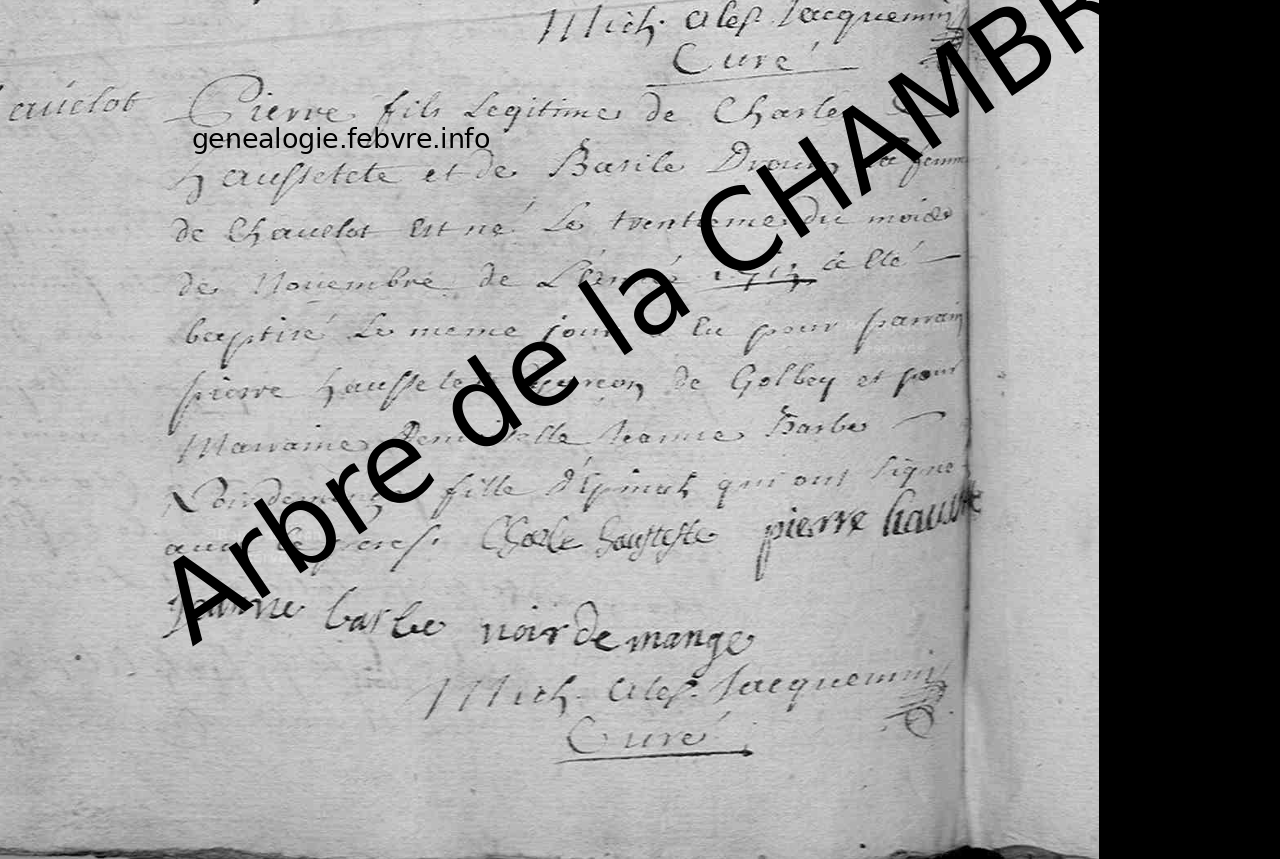 Mich. Alex. Jacquemin
Curé
Pierre fils Legitime de Charle
genealogie.febvre.info
haussetete et de Basile Drouin sa femme
de Chauelot Est né Le trentieme du mois
de Nouembre de L'année 1713 a Eté
baptisé Le meme jour Eu pour parrain
pierre haussetete garçon de Golbey et pour
Marraine Demoiselle Jeanne Barbe
Noirdemange fille D'Epinal qui ont signé
auec Le perre Charle haustete pierre
Jeanne barbe noirdemange
Mich. Alex. Jacquemin
Curé
Arbre de la CHAMBR